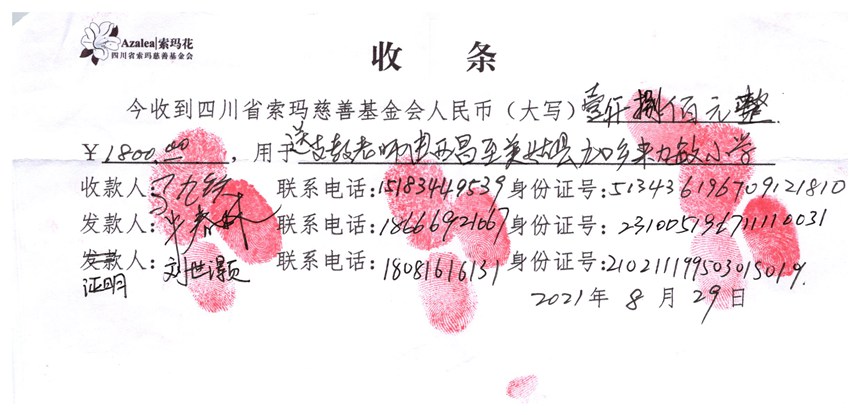 Azalea|索玛花
四川省索玛慈善基金会
收 条
今收到四川省索玛慈善基金会人民币（大写）壹仟捌佰元整
￥1800.00，用于送支教老师由西昌至美姑县 乡来力敏小学
收款人： 联系电话：15183449539 身份证号：513436196709121810
发款人： 联系电话：18666921667 身份证号：231005196711110031
发款人：刘世灏 联系电话：18081616131 身份证号：210211199503015019.
证明
2021年 8 月 29 日